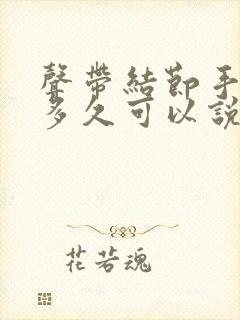 聲帶結節手
多久可以說
花若魂